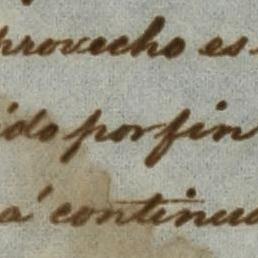 provecho es
ido por fin
a continu